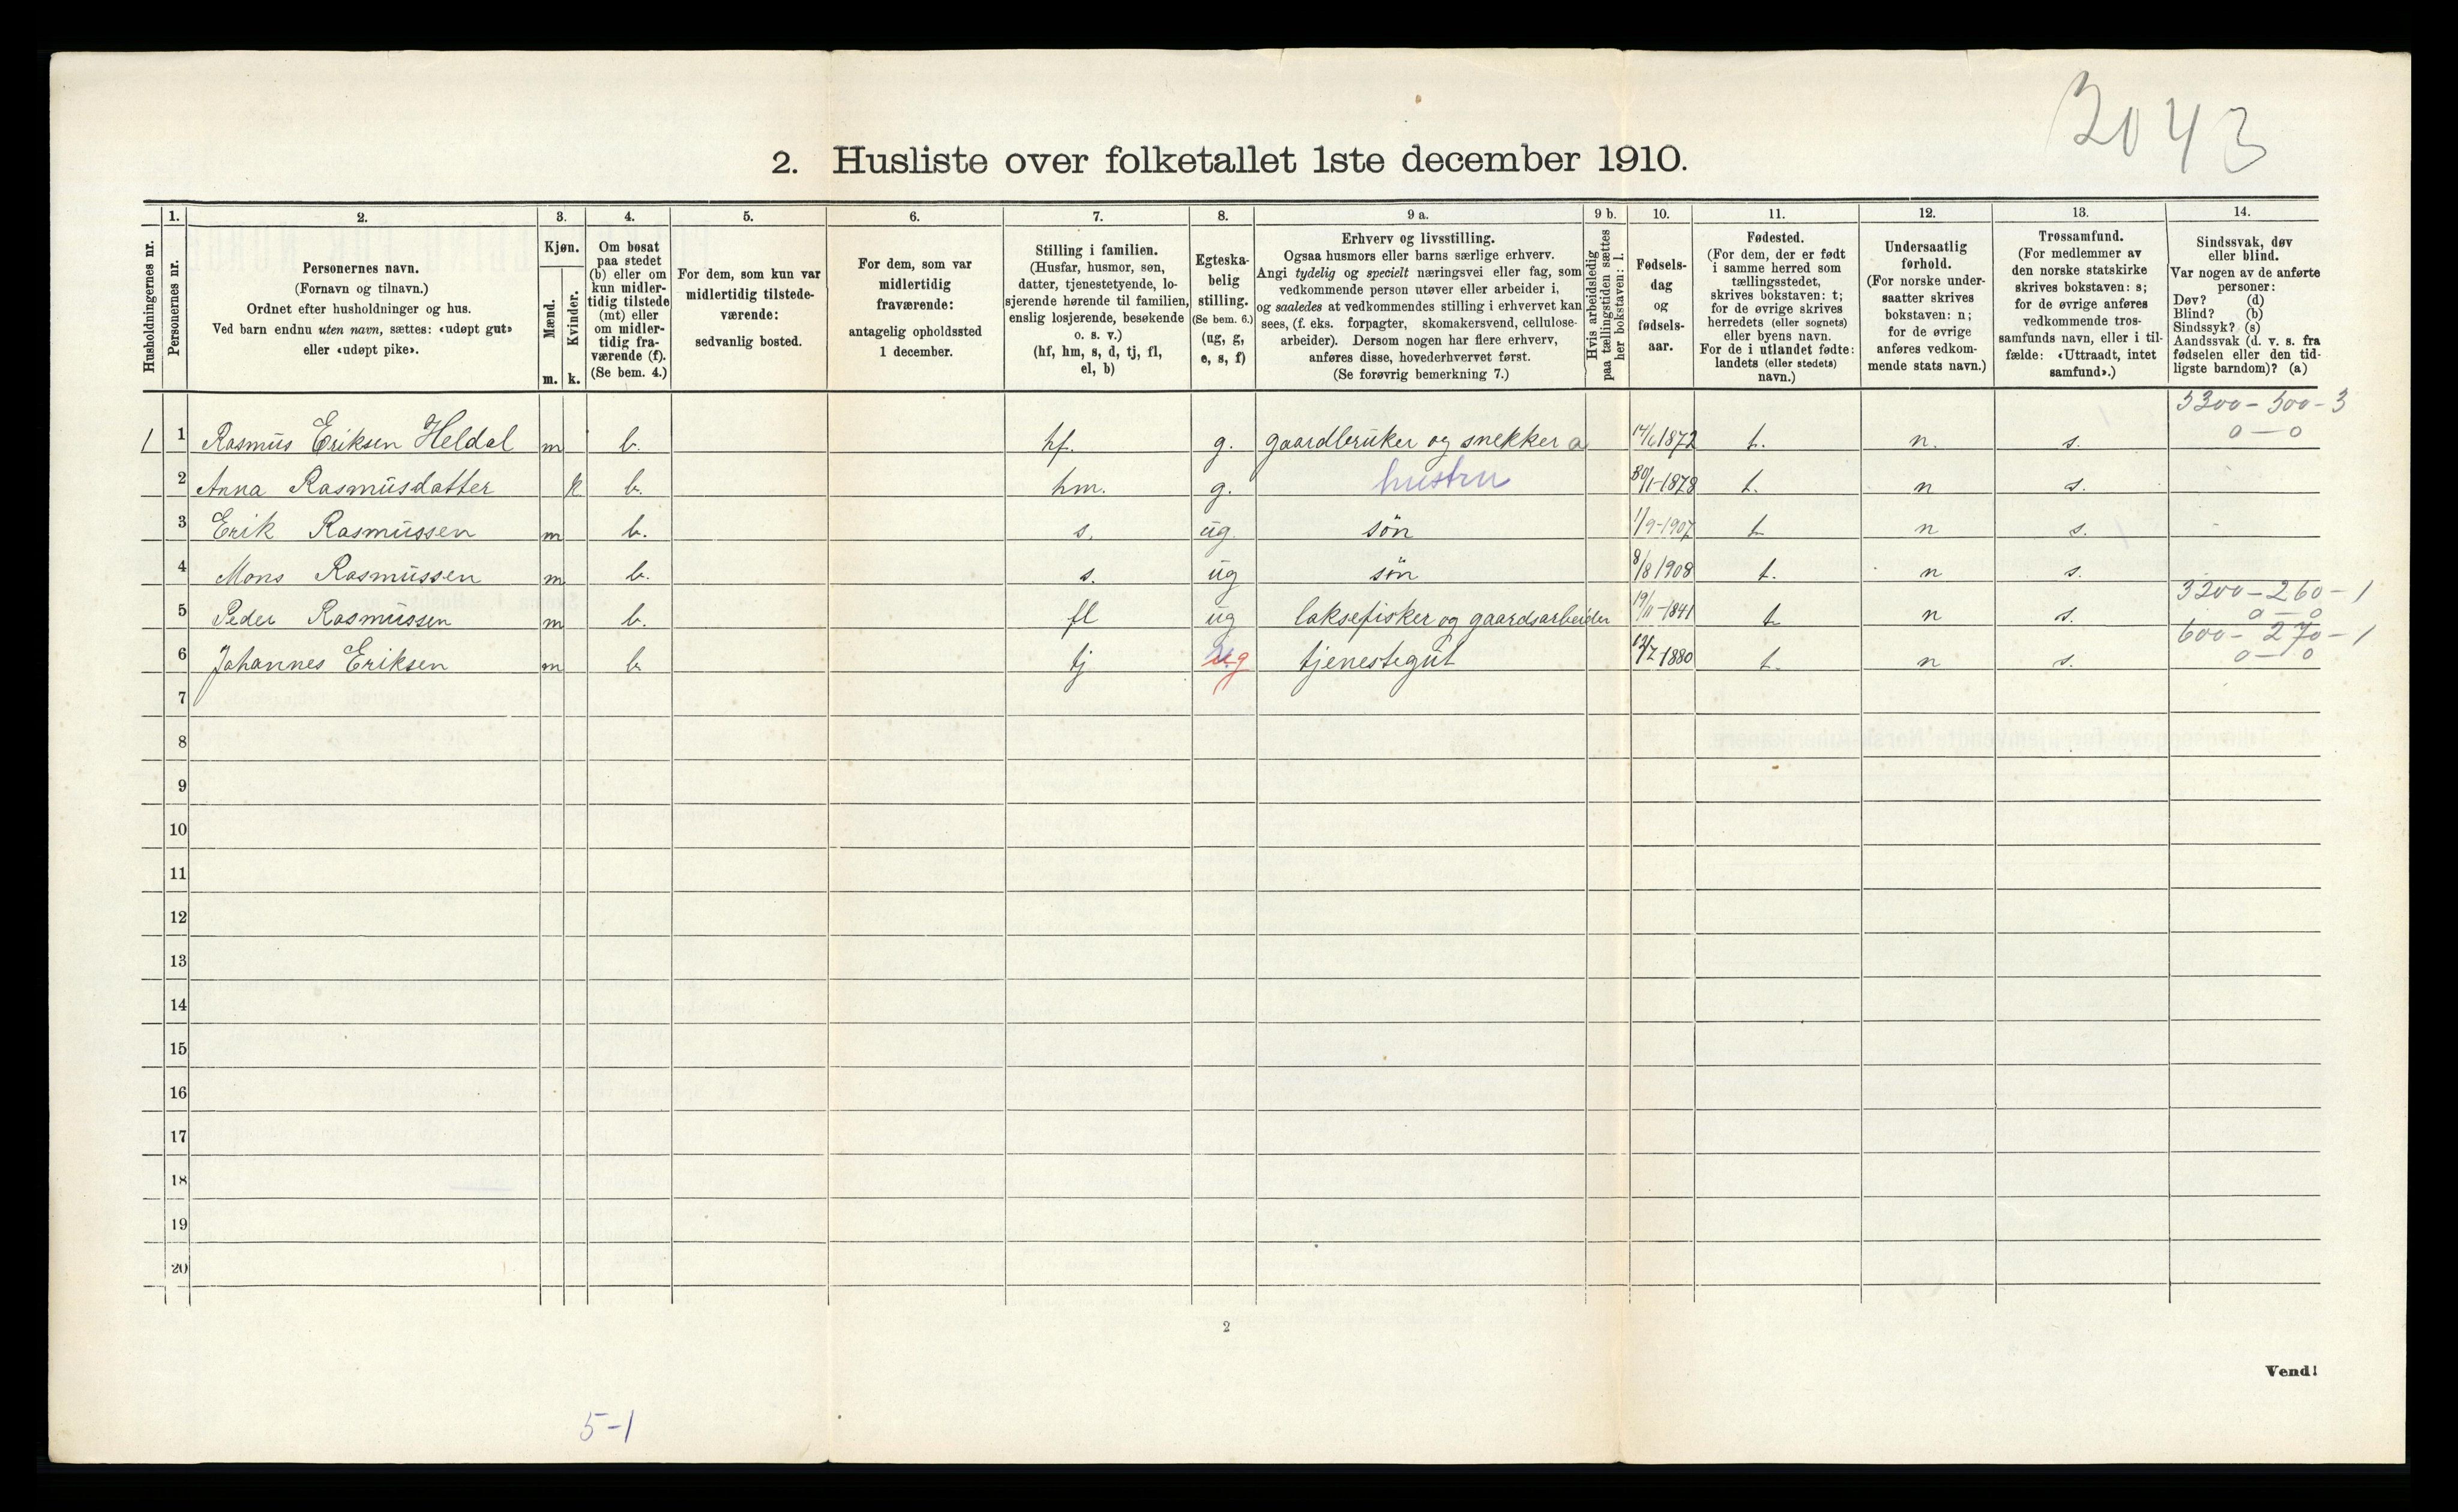 3043
2. Husliste over folketallet 1ste december 1910.
1. 2. 3. 4. 5. 6. 7. 8. 9 a. 9 b. 10. 11. 12. 13. 14.
Husholdningernes nr.
Personernes nr.
Personernes navn.
(Fornavn og tilnavn.)
Ordnet efter husholdninger og hus.
Ved barn endnu uten navn, sættes: «udøpt gut»
eller «udøpt pike».
Kjøn.
Mænd.
Kvinder.
m. k.
Om bosat
paa stedet
(b) eller om
kun midler-
tidig tilstede
(mt) eller
om midler-
tidig fra-
værende (f).
(Se bem. 4.)
For dem, som kun var
midlertidig tilstede-
værende:
sedvanlig bosted.
For dem, som var
midlertidig
fraværende:
antagelig opholdssted
1 december.
Stilling i familien.
(Husfar, husmor, søn,
datter, tjenestetyende, lo-
sjerende hørende til familien,
enslig losjerende, besøkende
o. s. v.)
(hf, hm, s, d, tj, fl,
el, b)
Egteska-
belig
stilling.
(Se bem. 6.)
(ug, g,
e, s, f)
Erhverv og livsstilling.
Ogsaa husmors eller barns særlige erhverv.
Angi tydelig og specielt næringsvei eller fag, som
vedkommende person utøver eller arbeider i,
og saaledes at vedkommendes stilling i erhvervet kan
sees, (f. eks. forpagter, skomakersvend, cellulose-
arbeider). Dersom nogen har flere erhverv,
anføres disse, hovederhvervet først.
(Se forøvrig bemerkning 7.)
Hvis arbeidsledig
paa tællingstiden sættes
her bokstaven: l.
Fødsels-
dag
og
fødsels-
aar.
Fødested.
(For dem, der er født
i samme herred som
tællingsstedet,
skrives bokstaven: t;
for de øvrige skrives
herredets (eller sognets)
eller byens navn.
For de i utlandet fødte:
landets (eller stedets)
navn.)
Undersaatlig
forhold.
(For norske under-
saatter skrives
bokstaven: n;
for de øvrige
anføres vedkom-
mende stats navn.)
Trossamfund.
(For medlemmer av
den norske statskirke
skrives bokstaven: s;
for de øvrige anføres
vedkommende tros-
samfunds navn, eller i til-
fælde: «Uttraadt, intet
samfund».)
Sindssvak, døv
eller blind.
Var nogen av de anførte
personer:
Døv? (d)
Blind? (b)
Sindssyk? (s)
Aandssvak (d. v. s. fra
fødselen eller den tid-
ligste barndom)? (a)
5300 - 500 - 3
1 1 Rasmus Eriksen Heldal m b. hf. g. gaardbruker og snekker a 14/6 1872 t. n. s. 0 — 0
2 Anna Rasmusdatter k b. hm. g. hustru 30/1-1878 t. n s.
3 Erik Rasmussen m b. s. ug. søn 1/9-1907 t n s.
4 Mons Rasmussen m b. s. ug søn 8/8 1908 t. n s.
3200 - 260 - 1
5 Peder Rasmussen m b. fl ug laksefisker og gaardsarbeider 19/11-1841 t n s. 0 — 0
600 - 270 - 1
6 Johannes Eriksen m b tj ug tjenestegut 1880 t. n s. 0 — 0
7
8
9
10
11
12
13
14
15
16
17
18
19
20
2
Vend!
5-1